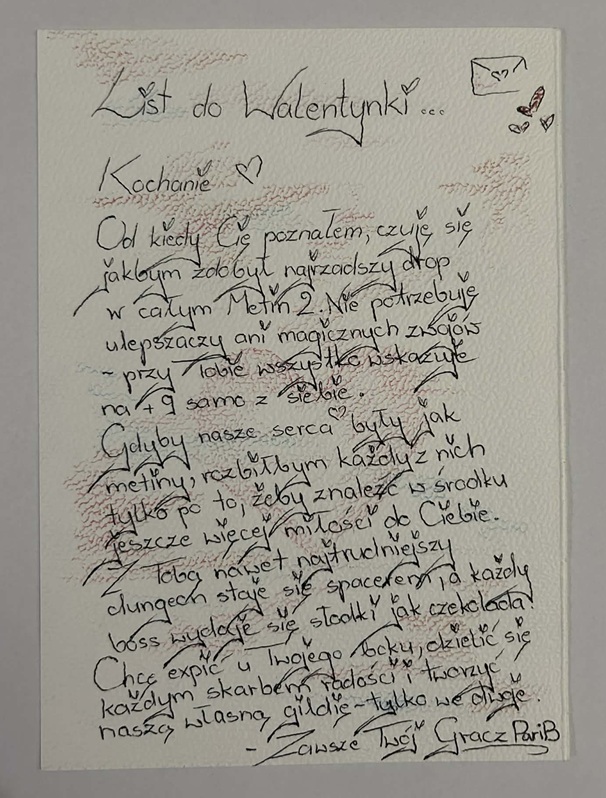 List do Walentynki...
Kochanie
Od kiedy Cię poznałem, czuję się
jakbym zdobył najrzadszy drop
w całym Metin 2. Nie potrzebuję
ulepszaczy ani magicznych zwojów
- przy Tobie wszystko wskazuje
na +9 samo z siebie.
Gdyby nasze serca były jak
metiny, rozbiłbym każdy z nich
tylko po to, żeby znaleźć w środku
jeszcze więcej miłości do Ciebie.
Z Tobą nawet najtrudniejszy
dungeon staje się spacerem, a każdy
boss wydaje się słodki jak czekolada!
Chcę expić u Twojego boku, dzielić się
każdym skarbem radości i tworzyć
naszą własną gildię - tylko we dwoje.
- Zawsze Twój Gracz PariB